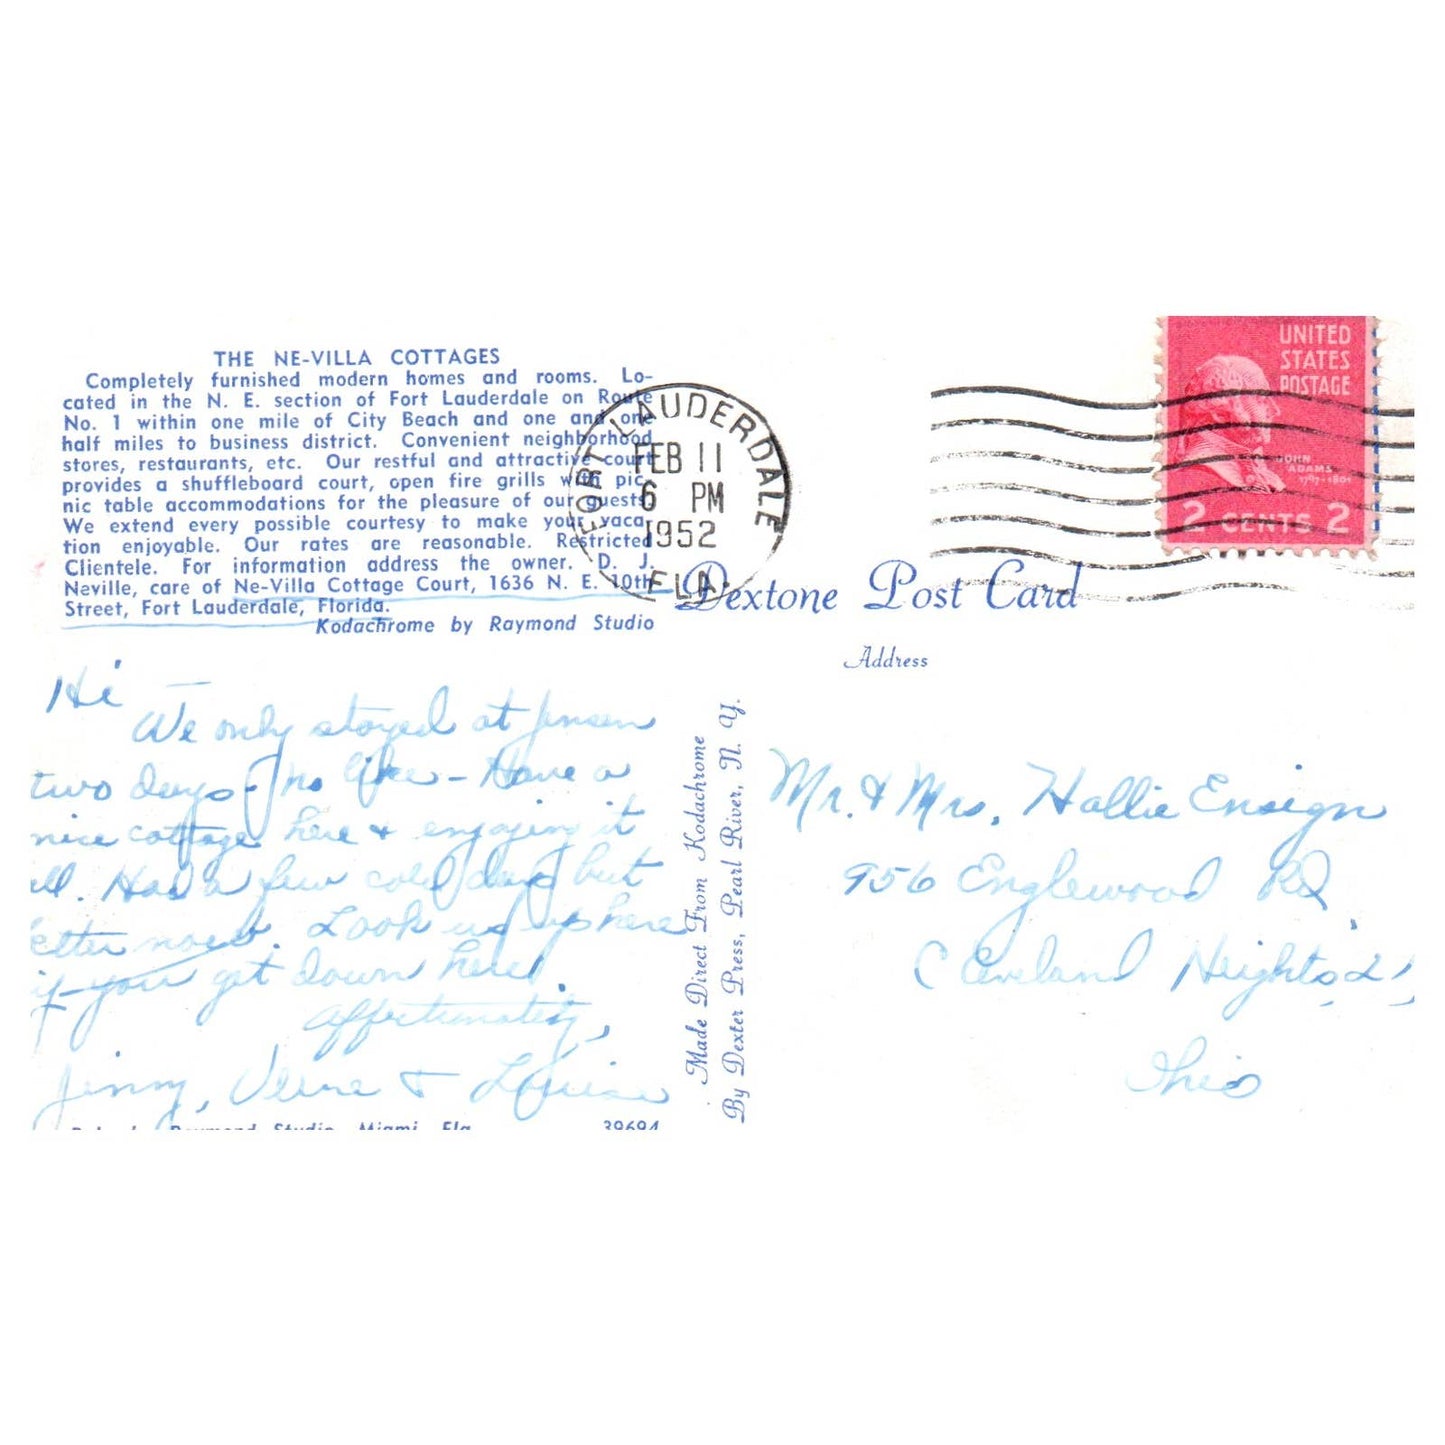 THE NE-VILLA COTTAGES
Completely furnished modern homes and rooms. Lo-
cated in the N. E. section of Fort Lauderdale on Route
No. 1 within one mile of City Beach and one and one
half miles to business district. Convenient neighborhood
stores, restaurants, etc. Our restful and attractive court
provides a shuffleboard court, open fire grills with pic-
nic table accommodations for the pleasure of our guests
We extend every possible courtesy to make your vaca-
tion enjoyable. Our rates are reasonable. Restricted
Clientele. For information address the owner. D. J.
Neville, care of Ne-Villa Cottage Court, 1636 N. E. 10th
Street, Fort Lauderdale, Florida.
Kodachrome by Raymond Studio
FORT LAUDERDALE
FEB 11
6 PM
1952
FLA.
UNITED
STATES
POSTAGE
JOHN
ADAMS
1797-1801
2 CENTS 2
Dextone Post Card
Address
Hi —
We only stayed at Jensen
two days - no like - Have a
nice cottage here & enjoying it
all. Had a few cold days but
etter now. Look us up here
if you get down here!
Affectionately,
Jinny, Verne & Louise
Raymond Studio, Miami, Fla.
39694
Made Direct From Kodachrome
By Dexter Press, Pearl River, N. Y.
Mr. & Mrs. Hallie Ensign
956 Englewood Rd
Cleveland Heights 21,
Ohio